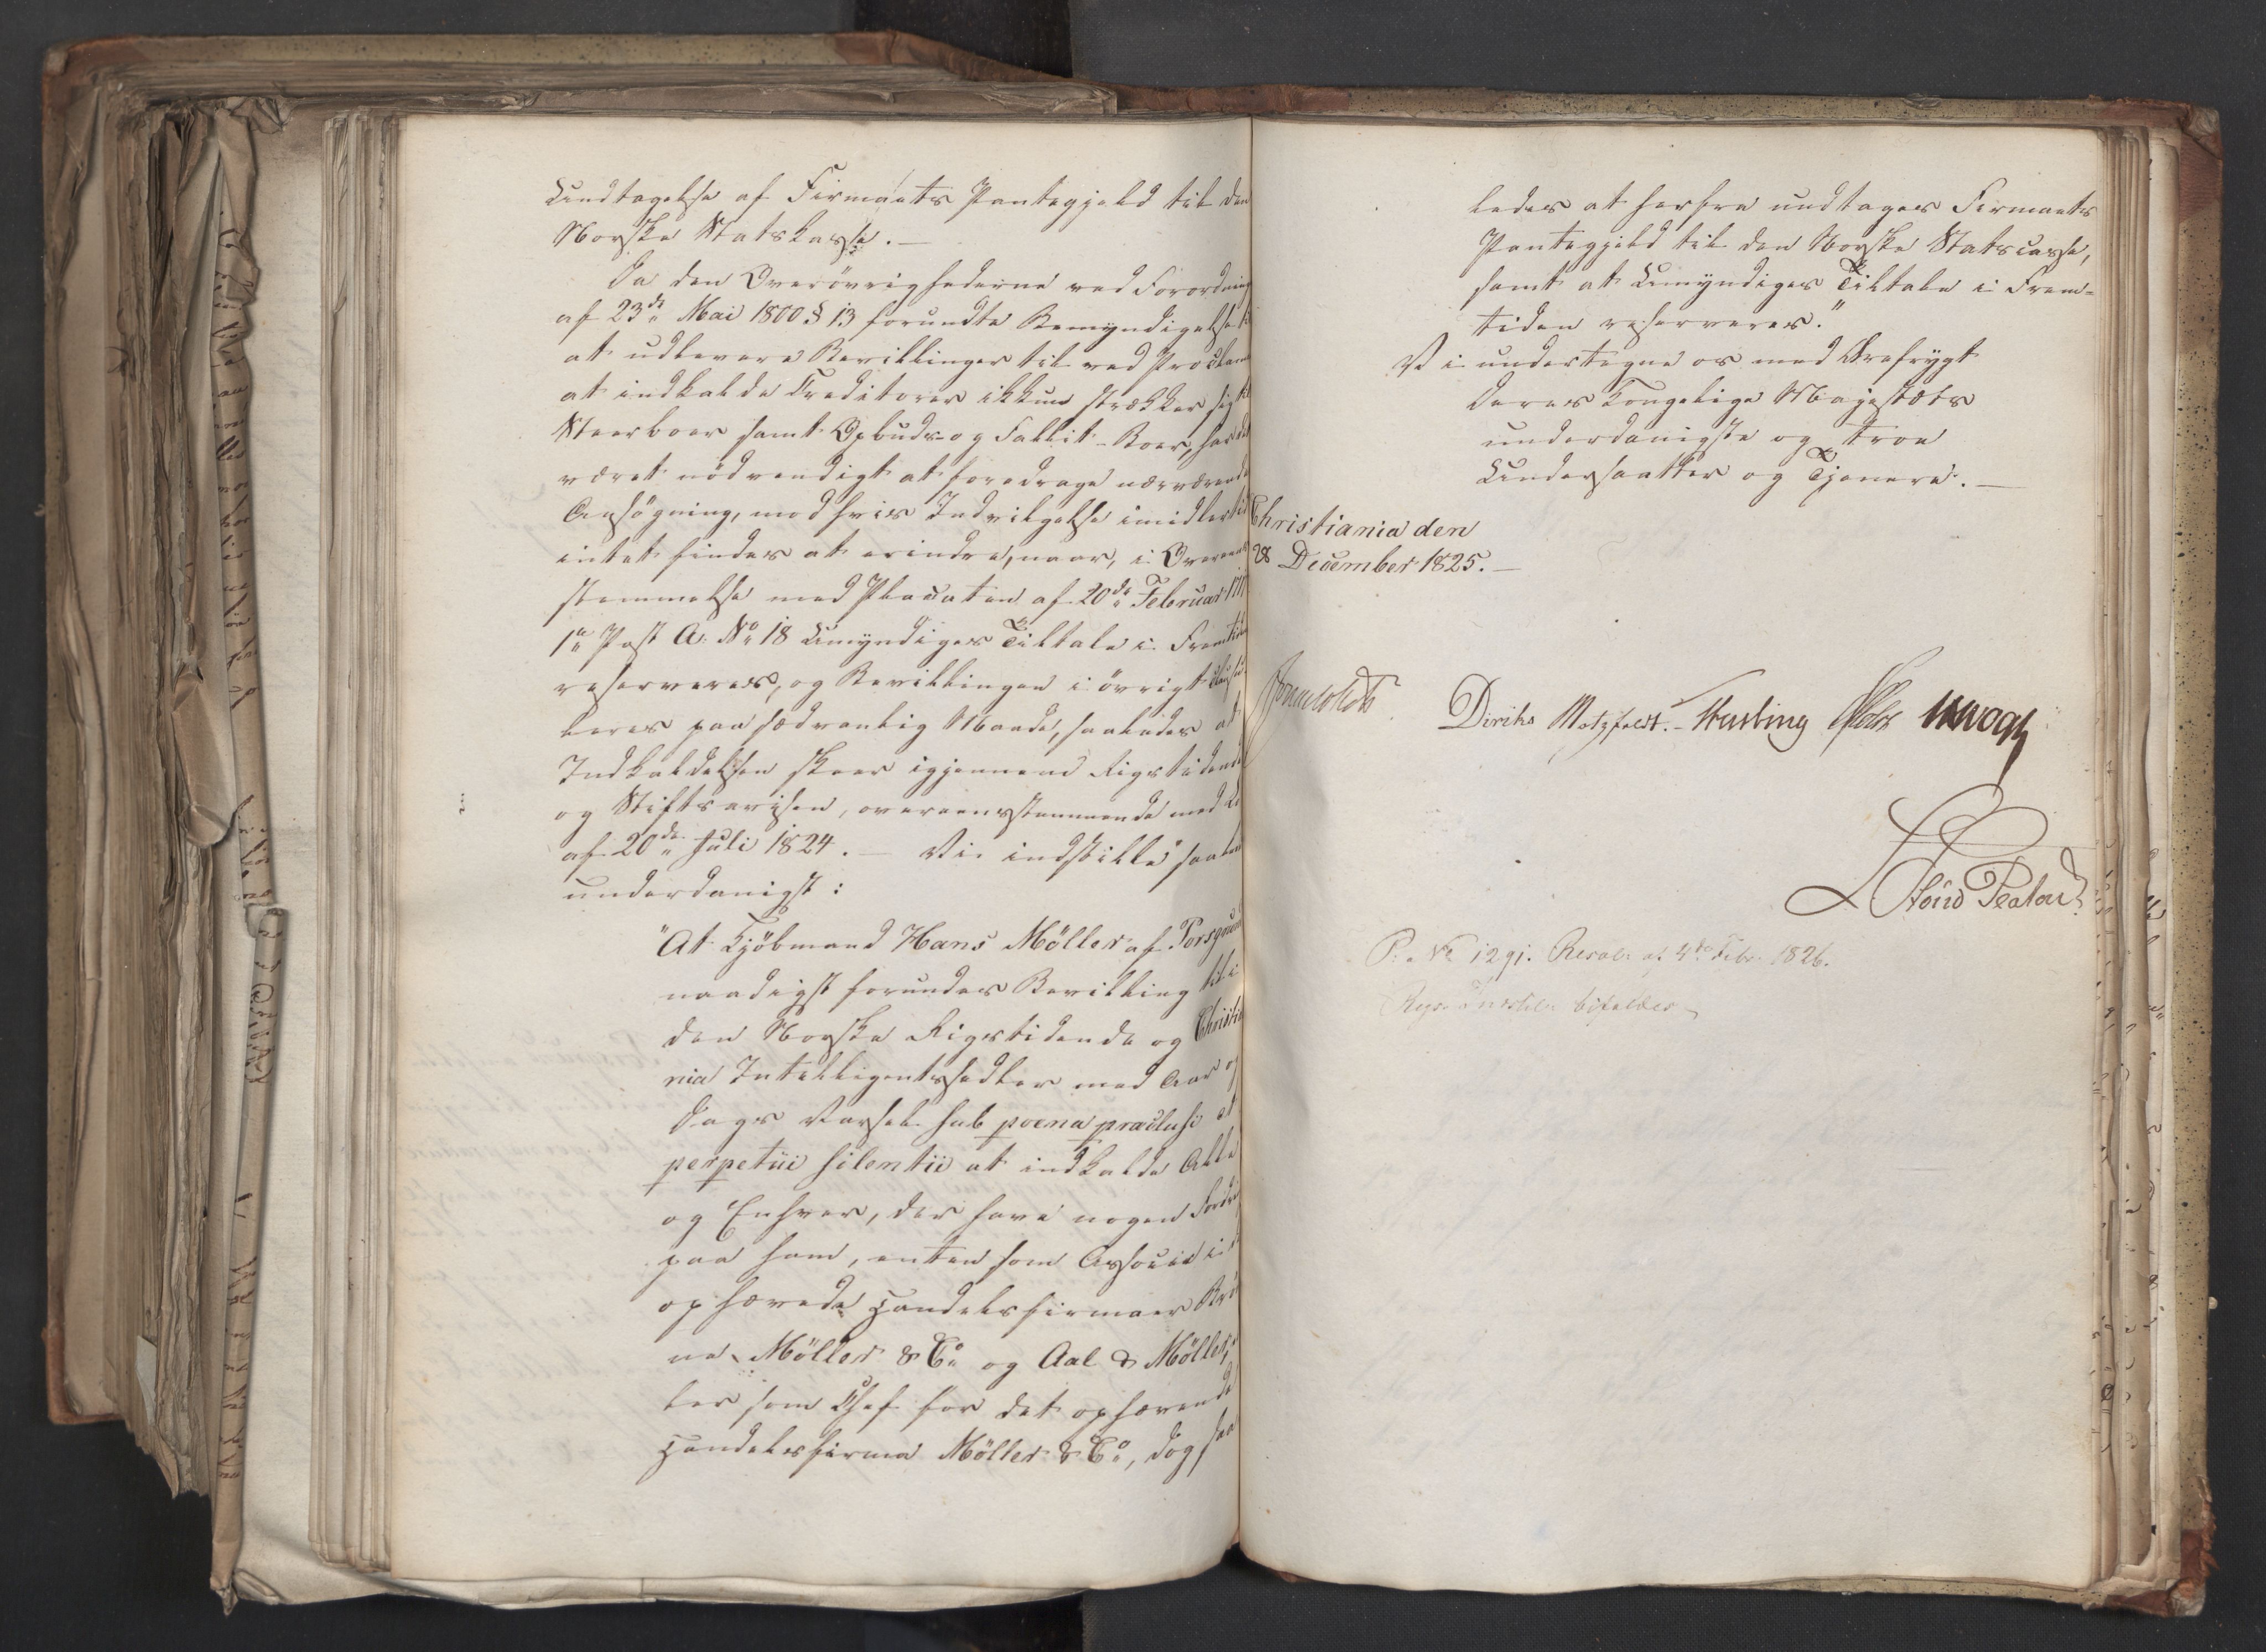 Undtagelse af Firmaets Pantegjeld til den
Norske Statskasse. —
Da den Overövrighederne ved Forordning
af 23de Mai 1800 § 13 forundte Bemyndigelse til
at udlevere Bevillinger til ved Proclama
at indkalde Creditorer ikkun strækker sig til
Stervboer samt Opbuds- og Fallit-Boer, har det
været nödvendigt at foredrage nærværende
Ansögning, mod hvis Indvilgelse imidlertid
intet findes at erindre, naar, i Overeens
stemmelse med Placaten af 20de Februar
1ste Post A. No 18 Umyndiges Tiltale i Fremtiden
reserveres, og Bevillingen i övrigt clausu
leres paa sædvanlig Maade, saaledes at
Indkaldelsen skeer igjennem Rigstidende
og Stiftsavisen, overeensstemmende med Lov
af 20de Juli 1824. — Vi indstille saaledes
underdanigst:
"At Kjöbmand Hans Möller af Porsgrund
naadigst forundes Bevilling til i
den Norske Rigstidende og Christia
nia Intelligentssedler med Aar og
Dags Varsel sub poena præclusi et
perpetui silentii at indkalde Alle
og Enhver, der have nogen Fordring
paa ham, enten som Associe i de
ophævede Handelsfirmaer
Möller & Co og Aal & Möller,
ler som Chef for det ophævende
Handelsfirma Möller & Co, dog saa
ledes at herfra undtages Firmaets
Pantegjeld til den Norske Statscasse,
samt at Umyndiges Tiltale i Frem-
tiden reserveres."
Vi undertegne os med Ærefrygt
Deres Kongelige Majestæts
underdanigste og troe
Undersaatter og Tjenere. —
Christiania den
28 December 1825. —
Diriks Motzfeldt. - Hersleng
P: No 1291. Resol: af 4de Febr. 1826.
bifaldes